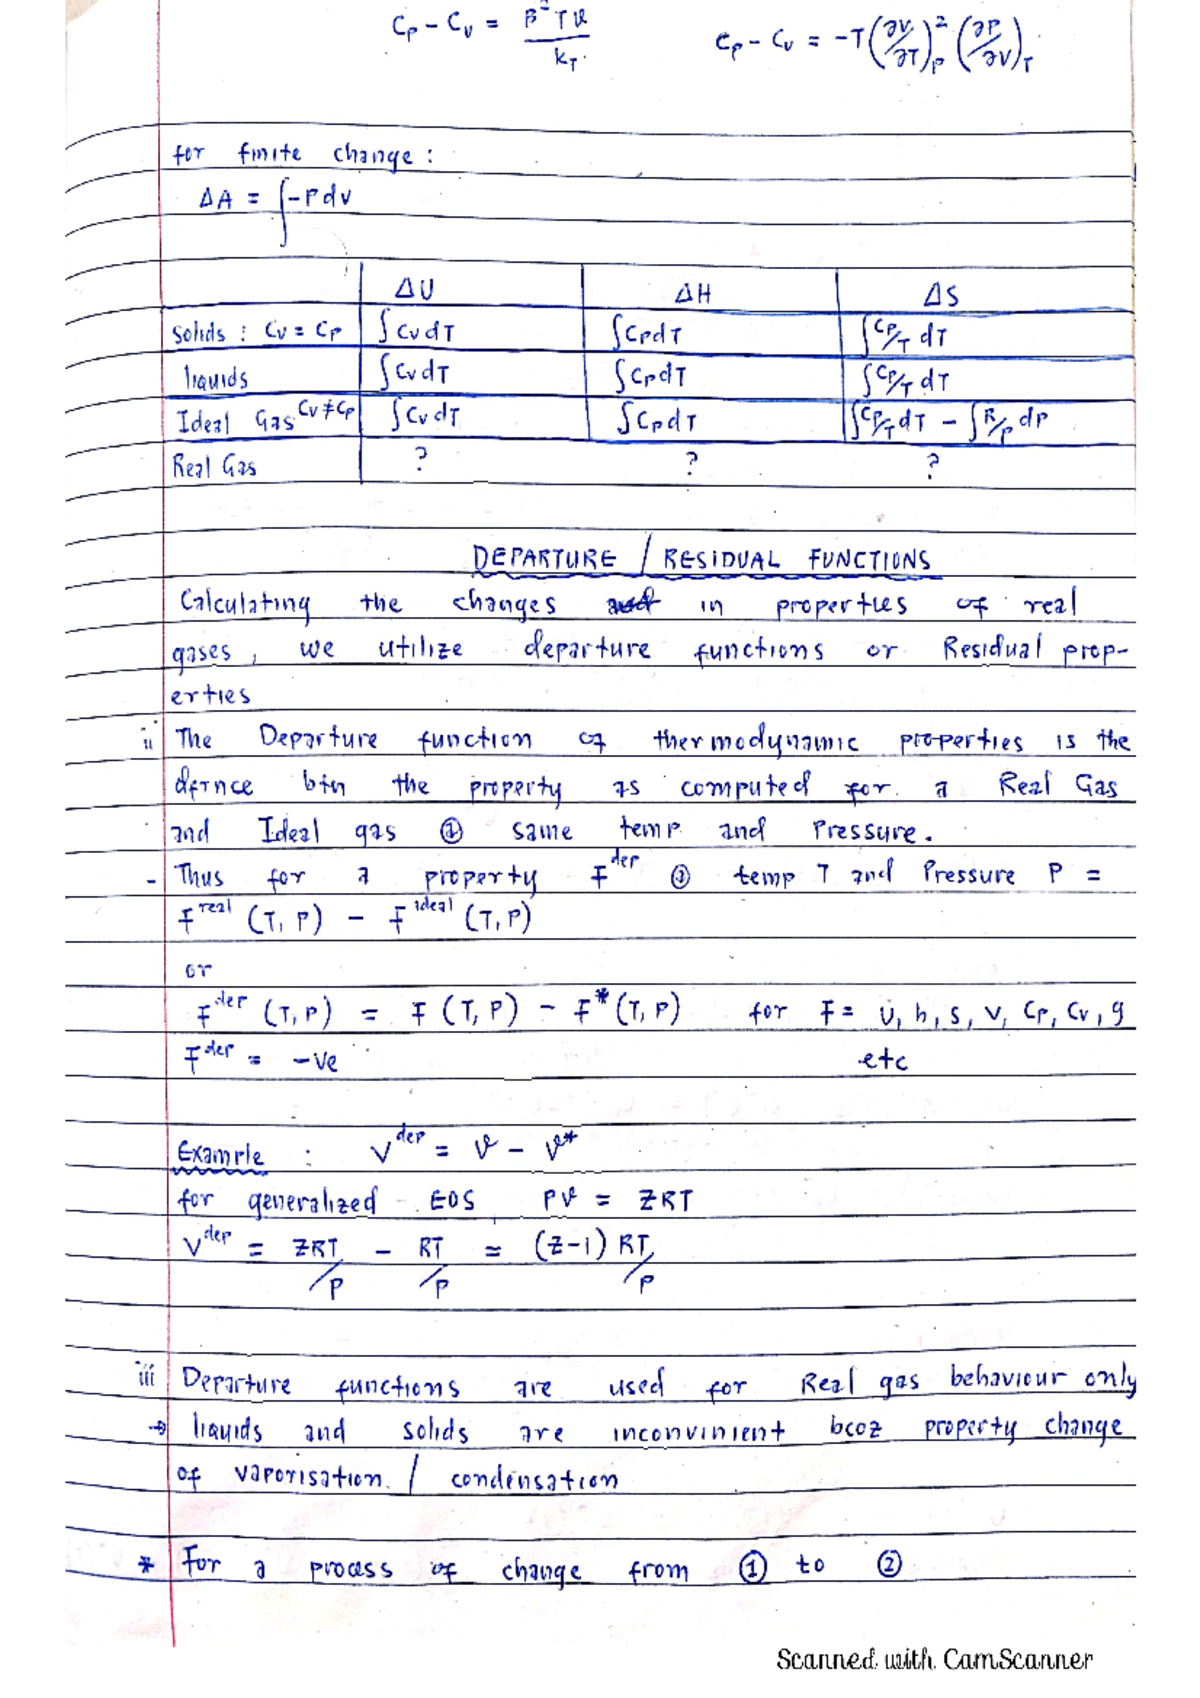 Cp - Cv = β²Tv/kT   Cp - Cv = -T(∂V/∂T)²P (∂P/∂V)T
for finite change :
ΔA = ∫-Pdv
ΔU   ΔH   ΔS
Solids : Cv = Cp   ∫CvdT   ∫CpdT   ∫Cp/T dT
liquids   ∫CvdT   ∫CpdT   ∫Cp/T dT
Ideal Gas Cv≠Cp   ∫CvdT   ∫CpdT   ∫Cp/T dT - ∫R/P dP
Real Gas   ?   ?   ?
DEPARTURE / RESIDUAL FUNCTIONS
Calculating the changes in properties of real
gases, we utilize departure functions or Residual prop-
erties
ii The Departure function of thermodynamic properties is the
dfrnce btn the property as computed for a Real Gas
and Ideal gas @ same temp and Pressure.
- Thus for a property F^dep @ temp T and Pressure P =
F^real (T, P) - F^ideal (T, P)
or
F^dep (T, P) = F (T, P) - F* (T, P)   for F = U, h, s, v, Cp, Cv, g
F^dep = -ve   etc
Example : V^dep = v - v*
for generalized EOS Pv = ZRT
V^dep = ZRT/P - RT/P = (Z-1) RT/P
iii Departure functions are used for Real gas behaviour only
→ liquids and solids are inconvinient bcoz property change
of vaporisation / condensation
* For a process of change from ① to ②
Scanned with CamScanner